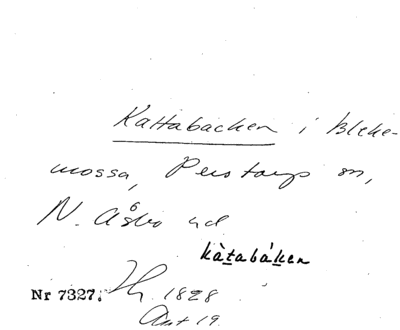 Kattabacken i Bleke-
mossa, Perstorps sn,
N. Åsbo hd
kàt̲abák̲en
Nr 7327. 1828
19.